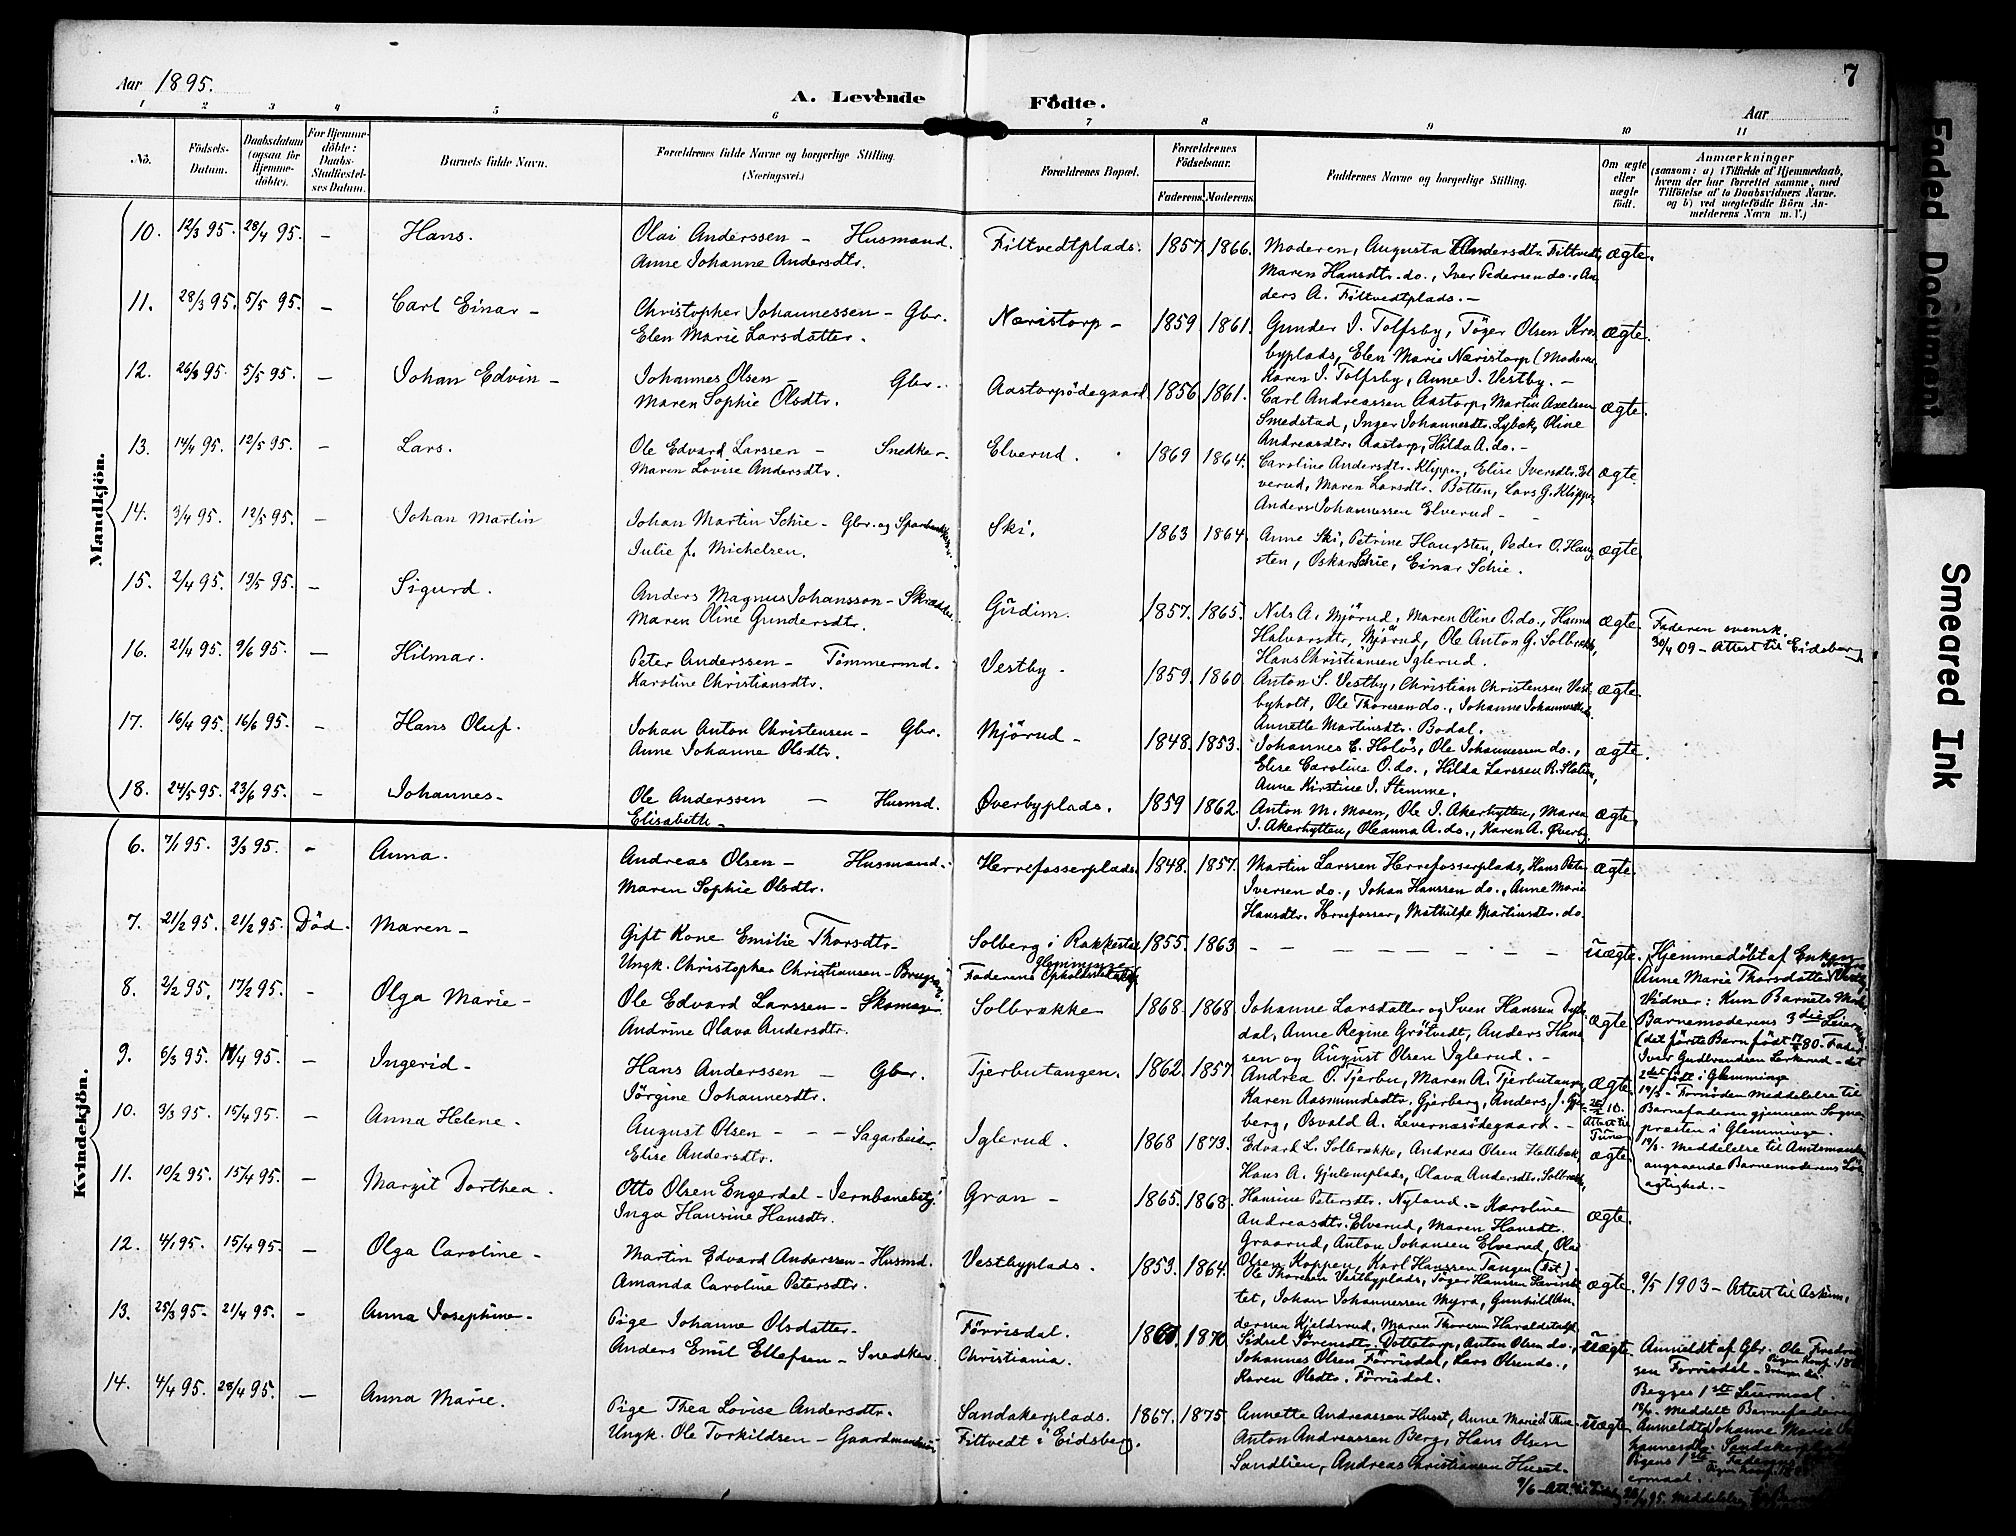 Aar 1895.
A. Levende Födte.
Aar
7
1 2 3 4 5 6 7 8 9 10 11
No.
Födsels-Datum.
Daabsdatum (ogsaa for Hjemme-döbte).
For Hjemme-döbte: Daabs-Stadfæstel-ses Datum.
Barnets fulde Navn.
Forældrenes fulde Navne og borgerlige Stilling. (Næringsvei.)
Forældrenes Bopæl.
Forældrenes Födselsaar.
Faderens. Moderens.
Faddernes Navne og borgerlige Stilling.
Om ægte eller uægte födt.
Anmærkninger (saasom: a) i Tilfælde af Hjemmedaab, hvem der har forrettet samme, med Tilföielse af to Daabsvidners Navne, og b) ved uægtefödte Börn An-melderens Navn m. V.)
Mandkjön.
10. 12/3 95. 28/4 95. – Hans. Olai Anderssen – Husmand. Filtvedtplads. 1857. 1866. Moderen, Augusta Andersdtr. Filtvedt, ægte.
Anne Johanne Andersdtr. Maren Hansdtr. do., Iver Pedersen do., An-
ders A. Filtvedtplads. –
11. 28/3 95. 5/5 95. – Carl Einar – Christopher Johannessen – Gbr. Næristorp – 1859. 1861. Gunder I. Tolfsby, Töger Olsen Kro- ægte.
Elen Marie Larsdatter. byplads, Elen Marie Næristorp (Moderen
Karen I. Tolfsby, Anne I. Vestby. –
12. 26/3 95. 5/5 95. – Johan Edvin – Johannes Olsen – Gbr. Aastorpödegaard 1856 1861. Carl Andreassen Aastorp, Martin Axelsen ægte.
Maren Sophie Olsdtr. Smedstad, Inger Johannesdtr. Lybek, Oline
Andreasdtr. Aastorp, Hilda A. do. –
13. 14/4 95. 12/5 95. – Lars. Ole Edvard Larssen – Snedker. Elverud. 1869 1864. Caroline Andersdtr. Klipper, Elise Iversdtr. El- ægte.
Maren Lovise Andersdtr. verud, Maren Larsdtr. Botten, Lars G. Klipper,
Anders Johannessen Elverud –
14. 3/4 95. 12/5 95. – Johan Martin Johan Martin Schie – Gbr. og Ski. 1863 1864. Anne Ski, Petrine Haugsten, Peder O. Haug- ægte.
Julie f. Michelsen. sten, Oskar Schie, Einar Schie.
15. 2/4 95. 19/5 95. – Sigurd. Anders Magnus Johansson – Gudim. 1857. 1865. Nils A. Mjörud, Maren Oline O. do., Hanna ægte. Faderen svensk.
Maren Oline Gundersdtr. Halvorsdtr. Mjörud, Ole Anton G. Solbrække, 30/4 09 – Attest til Eidsberg
Hans Christiansen Iglerud.
16. 21/4 95. 9/6 95. – Hilmar. Peter Anderssen – Tömmermd. Vestby – 1859. 1860. Anton S. Vestby, Christian Christensen Vest- ægte.
Karoline Christiansdtr. byholt, Ole Thoresen do.,
Annette Martinsdtr. Bodal.
17. 16/4 95. 16/6 95. – Hans Oluf. Johan Anton Christensen – Gbr. Mjörud – 1848. 1853. Johannes E. Holös, Ole Johannessen do., ægte.
Anne Johanne Olsdtr. Elise Caroline O. do., Hilda Larssen R. Station,
Anne Kirstine I. Stemme.
18. 24/5 95. 23/6 95. – Johannes – Ole Anderssen – Husmd. Øverbyplads. 1859 1862. Anton M. Moen, Ole I. Akerhytten, Maren ægte.
Elisabeth – I. Akerhytten, Oleanna A. do., Karen A. Øverby.
Kvindekjön.
6. 7/1 95. 3/3 95. – Anna. Andreas Olsen – Husmand. Herrefosserplads. 1848. 1857. Martin Larssen Herrefosserplads, Hans Peter ægte.
Maren Sophie Olsdtr. Iversen do., Johan Hanssen do., Anne Marie
Hansdtr. Herrefosser, Mathilde Martinsdtr. do.
7. 21/2 95. 21/2 95. Död. Maren – Gift Kone Emilie Thorsdtr. – Solberg i Rakkestad 1855. 1863 – – – – – – – – uægte. Hjemmedöbt af Enken
Ungk. Christopher Christiansen – Glemminge Faderens Opholdssted Anne Marie Thorsdatter
Vidner: Kun Barnets Moder
8. 2/2 95. 17/2 95. – Olga Marie – Ole Edvard Larssen – Skomager Solbrække 1868. 1868. Johanne Larsdatter og Sven Hanssen ægte. Barnemoderens 3die Leierm.
Andrine Olava Andersdtr. dal, Anne Regine Grötvedt, Anders Hans- (det förste Barn födt 80. Fader
sen og August Olsen Iglerud. – Iver Gudbrandsen Lekerud – det
9. 6/3 95. 15/4 95. – Ingerid – Hans Anderssen – Gbr. Tjerbutangen. 1862. 1857. Andrea O. Tjerbu, Maren A. Tjerbutangen, ægte. 2det födt i Glemminge
Jörgine Johannesdtr. Karen Aasmundsdtr. Gjerberg, Anders J. Gjer- 10. Attest til Tune 19/3 – Fornöden Meddelelse til
berg, Osvald A. Levernæsödegaard. – Barnefaderen gjennem Sogne-
10. 3/3 95. 15/4 95. – Anna Helene – August Olsen – – – Sagarbeider Iglerud. 1868 1873. Edvard L. Solbrække, Andreas Olsen Hellebæk, ægte. præsten i Glemminge.
Elise Andersdtr. Hans A. Gjulemplads, Olava Andersdtr. Solbræk, 19/3 – Meddelelse til Amtsmanden
11. 10/2 95. 15/4 95. – Margit Dorthea. Otto Olsen Engerdal – Jernbanebetj. Gran – 1865. 1868. Hansine Petersdtr. Nyland – Karoline ægte. angaaende Barnemoderens Lös-
Inga Hansine Hansdtr. Andreasdtr. Elverud, Maren Hansdtr. agtighed. –
Graarud, Anton Johansen Elverud, Olai
Olsen Koppen, Karl Hanssen Tangen (Set).
12. 4/1 95. 15/4 95. – Olga Caroline – Martin Edvard Anderssen – Husmd. Vestbyplads. 1853. 1864. Ole Thoresen Vestbyplads, Töger Hanssen ægte. 9/5 1903 – Attest til Askim.
Amanda Caroline Petersdtr. tet, Johan Johannessen Myra, Gunhild An-
derssen Kjeldsrud, Maren Thoresen
13. 25/3 95 – 21/4 95. – Anna Josephine – Pige Johanne Olsdatter – Förrisdal. 1870 Sidsel Sörensdtr. Dottetorp, Anton Olsen do., uægte. Anmeldt af Gbr. Ole
Anders Emil Ellefsen – Snedker. Christiania. Johannes Olsen Förrisdal, Lars Olsen do., sen Förrisdal –
Karen Olsdtr. Förrisdal. Begges 1ste Leiermaal
14. 4/4 95. 28/4 95. – Anna Marie. Pige Thea Lovise Andersdtr. Sandakerplads. 1867. 1875. Annette Andreassen Huset, Anne Marie uægte Meddelt Barnefaderen
Ungk. Ole Torkildsen – Filtvedt i Eidsberg. Anton Andreassen Berg, Hans Olsen Anmeldt Johanne Marie
Sandlien, Andreas Christiansen Huset. hannesdtr. Sandakerplads
Pigens 1ste Faderens
ermaal.
9/6 – Att. 95. Meddelelse
Faded Document
Smeared Ink